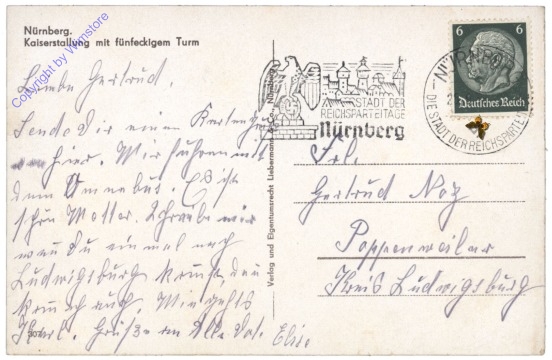 Nürnberg.
Kaiserstallung mit fünfeckigem Turm
Copyright by Wamstore
Liebe Gertrud,
Sende Dir einen Kartengruß
von hier. Wir fuhren mit
dem Omnibus. Es ist
schön Wetter. Schreibe mir
wan du einmal nach
Ludwigsburg komst, dan
kome ich auch. Wie gehts
Karl. Grüße an Alle Dat. Elise.
307
Verlag und Eigentumsrecht Liebermann & Co., Nürnberg
STADT DER
REICHSPARTEITAGE
Nürnberg
NÜRNBERG
DIE STADT DER REICHSPARTEITAGE
6 6
Deutsches Reich
Frl.
Gertrud Noz
Poppenweiler
Kreis Ludwigsburg